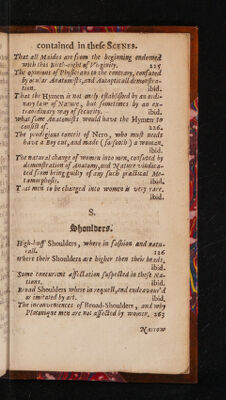 contained in these SCENES.
That all Maides are from the beginning endowed
with this Birth-right of Virginity. 225
The opinions of Physicians to the contrary, confuted
by ocular Anatomists, and Autopticall demonstra-
tion. ibid.
That the Hymen is not only established by an ordi-
nary law of Nature, but sometimes by an ex-
traordinary way of security. ibid.
What some Anatomists would have the Hymen to
consist of. 226.
The prodigious conceit of Nero, who must needs
have a Boy cut, and made (forsooth) a woman.
ibid.
The natural change of women into men, confuted by
demonstration of Anatomy, and Nature vindica-
ted from being guilty of any such practical Me-
tamorphosis. ibid.
That men to be changed into women is very rare.
ibid.
S.
Shoulders.
High-huff Shoulders, where in fashion and natu-
rall. 126
Where their Shoulders are higher then their heads.
ibid.
Some concurrent affectation suspected in these Na-
tions. ibid.
Broad Shoulders where in request, and endeavour'd
or imitated by art. ibid.
The inconveniences of Broad-Shoulders, and why
Platonique men are not affected by women. 263
Narrow